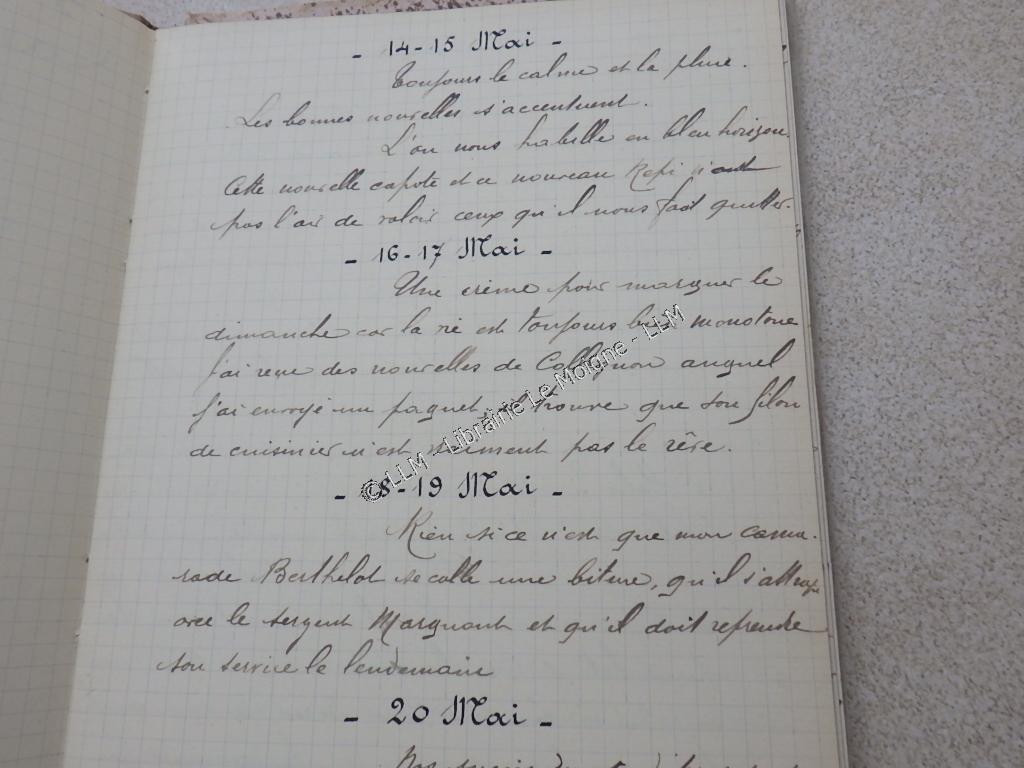 - 14-15 Mai -
Toujours le calme et la pluie.
Les bonnes nouvelles s'accentuent.
L'on nous habille en bleu horizon.
Cette nouvelle capote et ce nouveau Képi n'ont
pas l'air de valoir ceux qu'il nous faut quitter.
- 16-17 Mai -
Une crème pour marquer le
dimanche car la vie est toujours bien monotone
J'ai reçu des nouvelles de auquel
j'ai envoyé un paquet trouve que son filon
de cuisinier n'est vraiment pas le rêve.
- 18-19 Mai -
Rien si ce n'est que mon cama-
rade Berthelot se colle une biture, qu'il s'attrape
avec le sergent Marquant et qu'il doit reprendre
son service le lendemain
- 20 Mai -
© LLM - Librairie Le Moigne - LLM